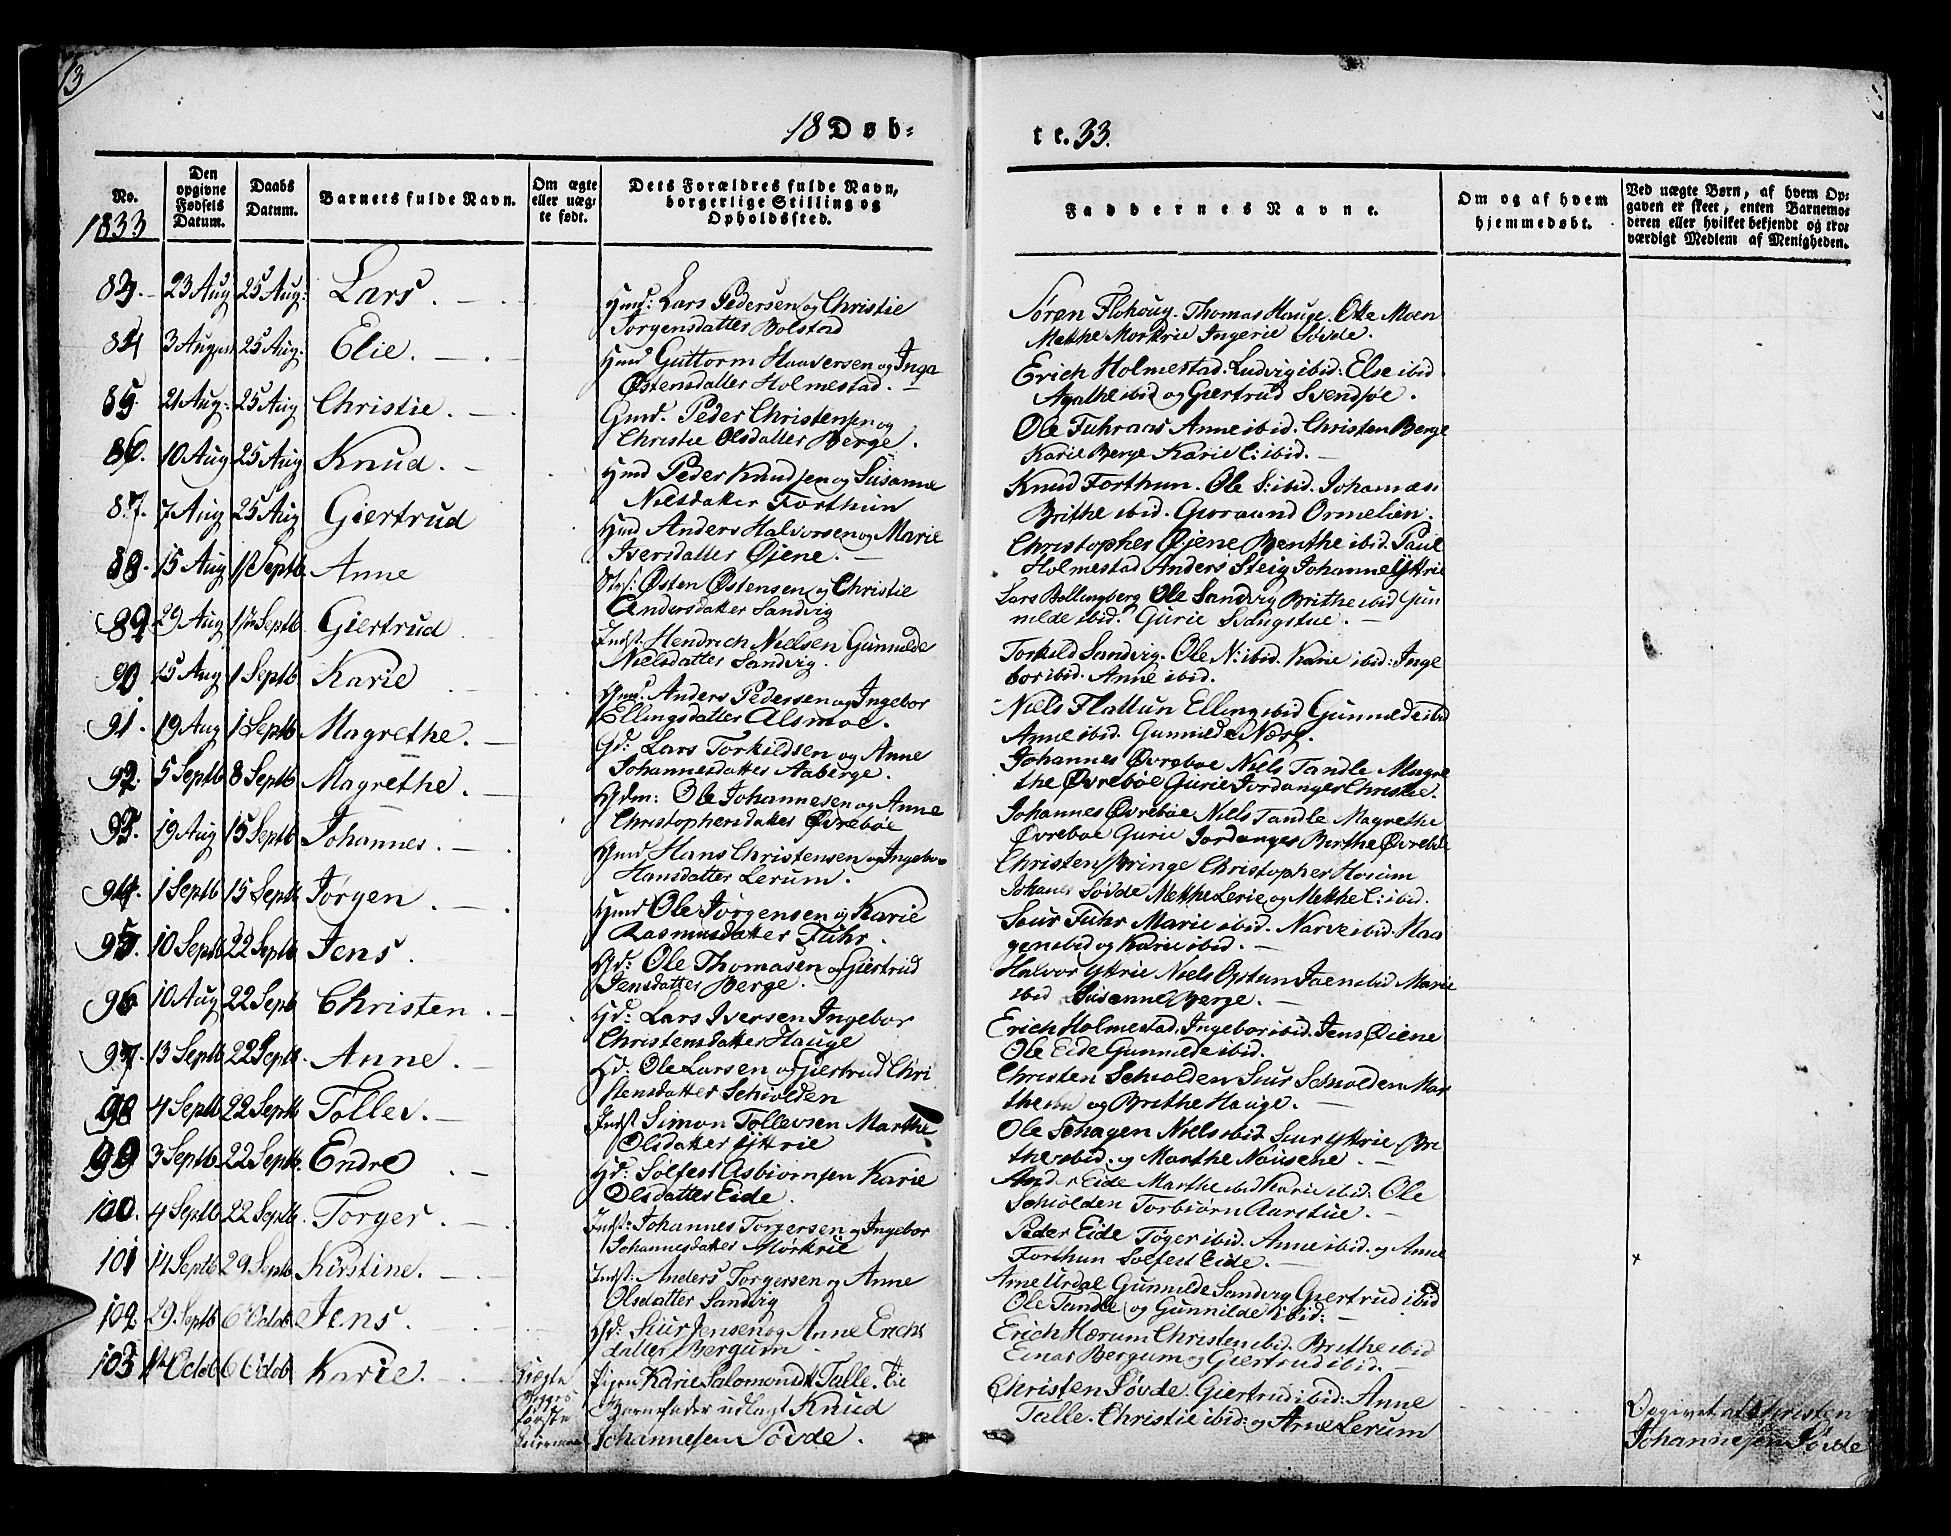 13
18 Døb-
te. 33.
No.
1833
Den opgivne Fødsels Datum.
Daabs Datum.
Barnets fulde Navn.
Om ægte eller uæg-te født.
Dets Forældres fulde Navn, borgerlige Stilling og Opholdssted.
Faddernes Navne.
Om og af hvem hjemmedøbt.
Ved uægte Børn, af hvem Op-gaven er skeet, enten Barnemo-deren eller hvilket bekjendt og tro-værdigt Medlem af Menigheden.
83. 23 Aug 25 Aug: Lars.
Hmd: Lars Pedersen og Christie
Torgensdatter Bolstad
Søren Flohoug. Thomas Hauge. Ole Moen
Methe Morkrie Ingerie Søvde.
84 3 Aug 25 Aug. Elie.
Hmd Guttorm Haaversen og Inga
Østensdatter Holmestad.
Erich Holmestad. Ludvig ibid: Else ibid.
Agathe ibid og Giertrud Svendsøe.
85. 21 Aug: 25 Aug Christie.
Gmd. Peder Christensen og
Christie Olsdatter Berge.
Ole Fuhraas Anne ibid. Christen Berge
Karie Berge Karie C: ibid.
86. 10 Aug 25 Aug Knud.
Hmd Peder Knudsen og Susanne
Nielsdatter Forthun
Knud Forthun. Ole S: ibid. Johannes
Brithe ibid. Goraand Ormelien.
87. 7 Aug 25 Aug Giertrud
Hmd Anders Halvorsen og Marie
Iversdatter Øjene.
Christopher Øjene Benthe ibid. Paul
Holmestad Anders Steig Johanne Yttrie
88. 15 Aug 1 Septb Anne
Østen Østensen og Christie
Andersdatter Sandvig
Lars Bollingberg Ole Sandvig Brithe ibid Gun
nilde ibid. Gurie Svangstue.
89 29 Aug 1 Septb. Giertrud
Indst: Hendrich Nielsen Gunnilde
Nielsdatter Sandvig.
Torkild Sandvig. Ole N: ibid. Karie ibid: Inge
bor ibid. Anne ibid.
90 15 Aug 1 Septb Karie
Hmd: Anders Pedersen og Ingebor
Ellingsdatter Alsmoe.
Niels Flattun Elling ibid Gunnilde ibid
Anne ibid. Gunnilde Næss.
91. 19 Aug 1 Septb Magrethe.
Gd: Lars Torkildsen og Anne
Johannesdatter Aaberge.
Johannes Øvrebøe Niels Tandle Magre
the Øvrebøe Gurie Jordanger Christie.
92. 5 Septb 8 Septb Magrethe.
Gdm: Ole Johannesen og Anne
Christophersdatter Øvrebøe
Johannes Øvrebøe Niels Tandle Magrethe
Øvrebøe Gurie Jordanger Berthe Øvrebøe
93. 19 Aug 15 Septb Johannes.
Hmd Hans Christensen og Ingebor
Hansdatter Lerum.
Christen Bringe Christopher Høium
Johanes Søvde Methe Lerie og Methe C: ibid.
94. 1 Septb 15 Septb Jørgen.
Hmd Ole Jørgensen og Karie
Rasmusdatter Fuhr.
Siur Fuhr Marie ibid. Narve ibid. Haa
gen ibid og Karie ibid.
95. 10 Septb 22 Septb Jens.
Gd: Ole Thomasen og Giertrud
Jensdatter Berge.
Halvor Yttrie Niels Opstun Joen ibid Marie
ibid Susanne Berge.
96 10 Aug 22 Sept Christen.
Gd: Lars Iversen Ingebor
Christensdatter Hauge
Erich Holmestad. Ingebor ibid. Jens Øiene
Ole Eide Gunnilde ibid.
97. 13 Septb 22 Septb. Anne.
Gd: Ole Larsen og Giertrud Chri
stensdatter Schiolden
Christen Schiolden Siur Schiolden Mar
the ibid og Brithe Hauge.
98 4 Septb 22 Septb Tollev.
Indst Simon Tollevsen Marthe
Olsdatter Yttrie
Ole Schagen Niels ibid Siur Yttrie. Bri
the ibid. og Marthe Nousene.
99 3 Septb. 22 Septb. Endre.
Gd: Solfest Asbiørnsen Karie
Olsdatter Eide.
Ander Eide Marthe ibid Karie ibid: Ole
Schiolden Torbiørn Aarstue.
100. 4 Septb 22 Septb. Torger.
Indst: Johannes Torgersen og Ingebor
Johannesdatter Mørkrie
Peder Eide Tøger ibid. Anne ibid. og Anne
Forthun Solfest Eide.
101 14 Septb 29 Septb Kirstine.
Indst: Anders Torgersen og Anne
Olsdatter Sandvig
Arne Urdal Gunnilde Sandvig Giertrud ibid
Ole Tandle og Gunnilde ibid:
x
102 29 Septb 6 Octob Jens.
Gd: Siur Jensen og Anne Erichs
datter Bergum.
Erich Hærum Christen ibid. Brithe ibid
Einar Bergum og Giertrud ibid.
103 1 Octob 6 Octob Karie.
Uægte
første
Pigen Karie Salomonsdt Talle. Til
Barnefader udlagt Knud
Johannesen Søvde.
Christen Søvde. Giertrud ibid: Anne
Talle. Christie ibid: og Arne Lerum
Opgivet af Christen
Johannesen Søvde